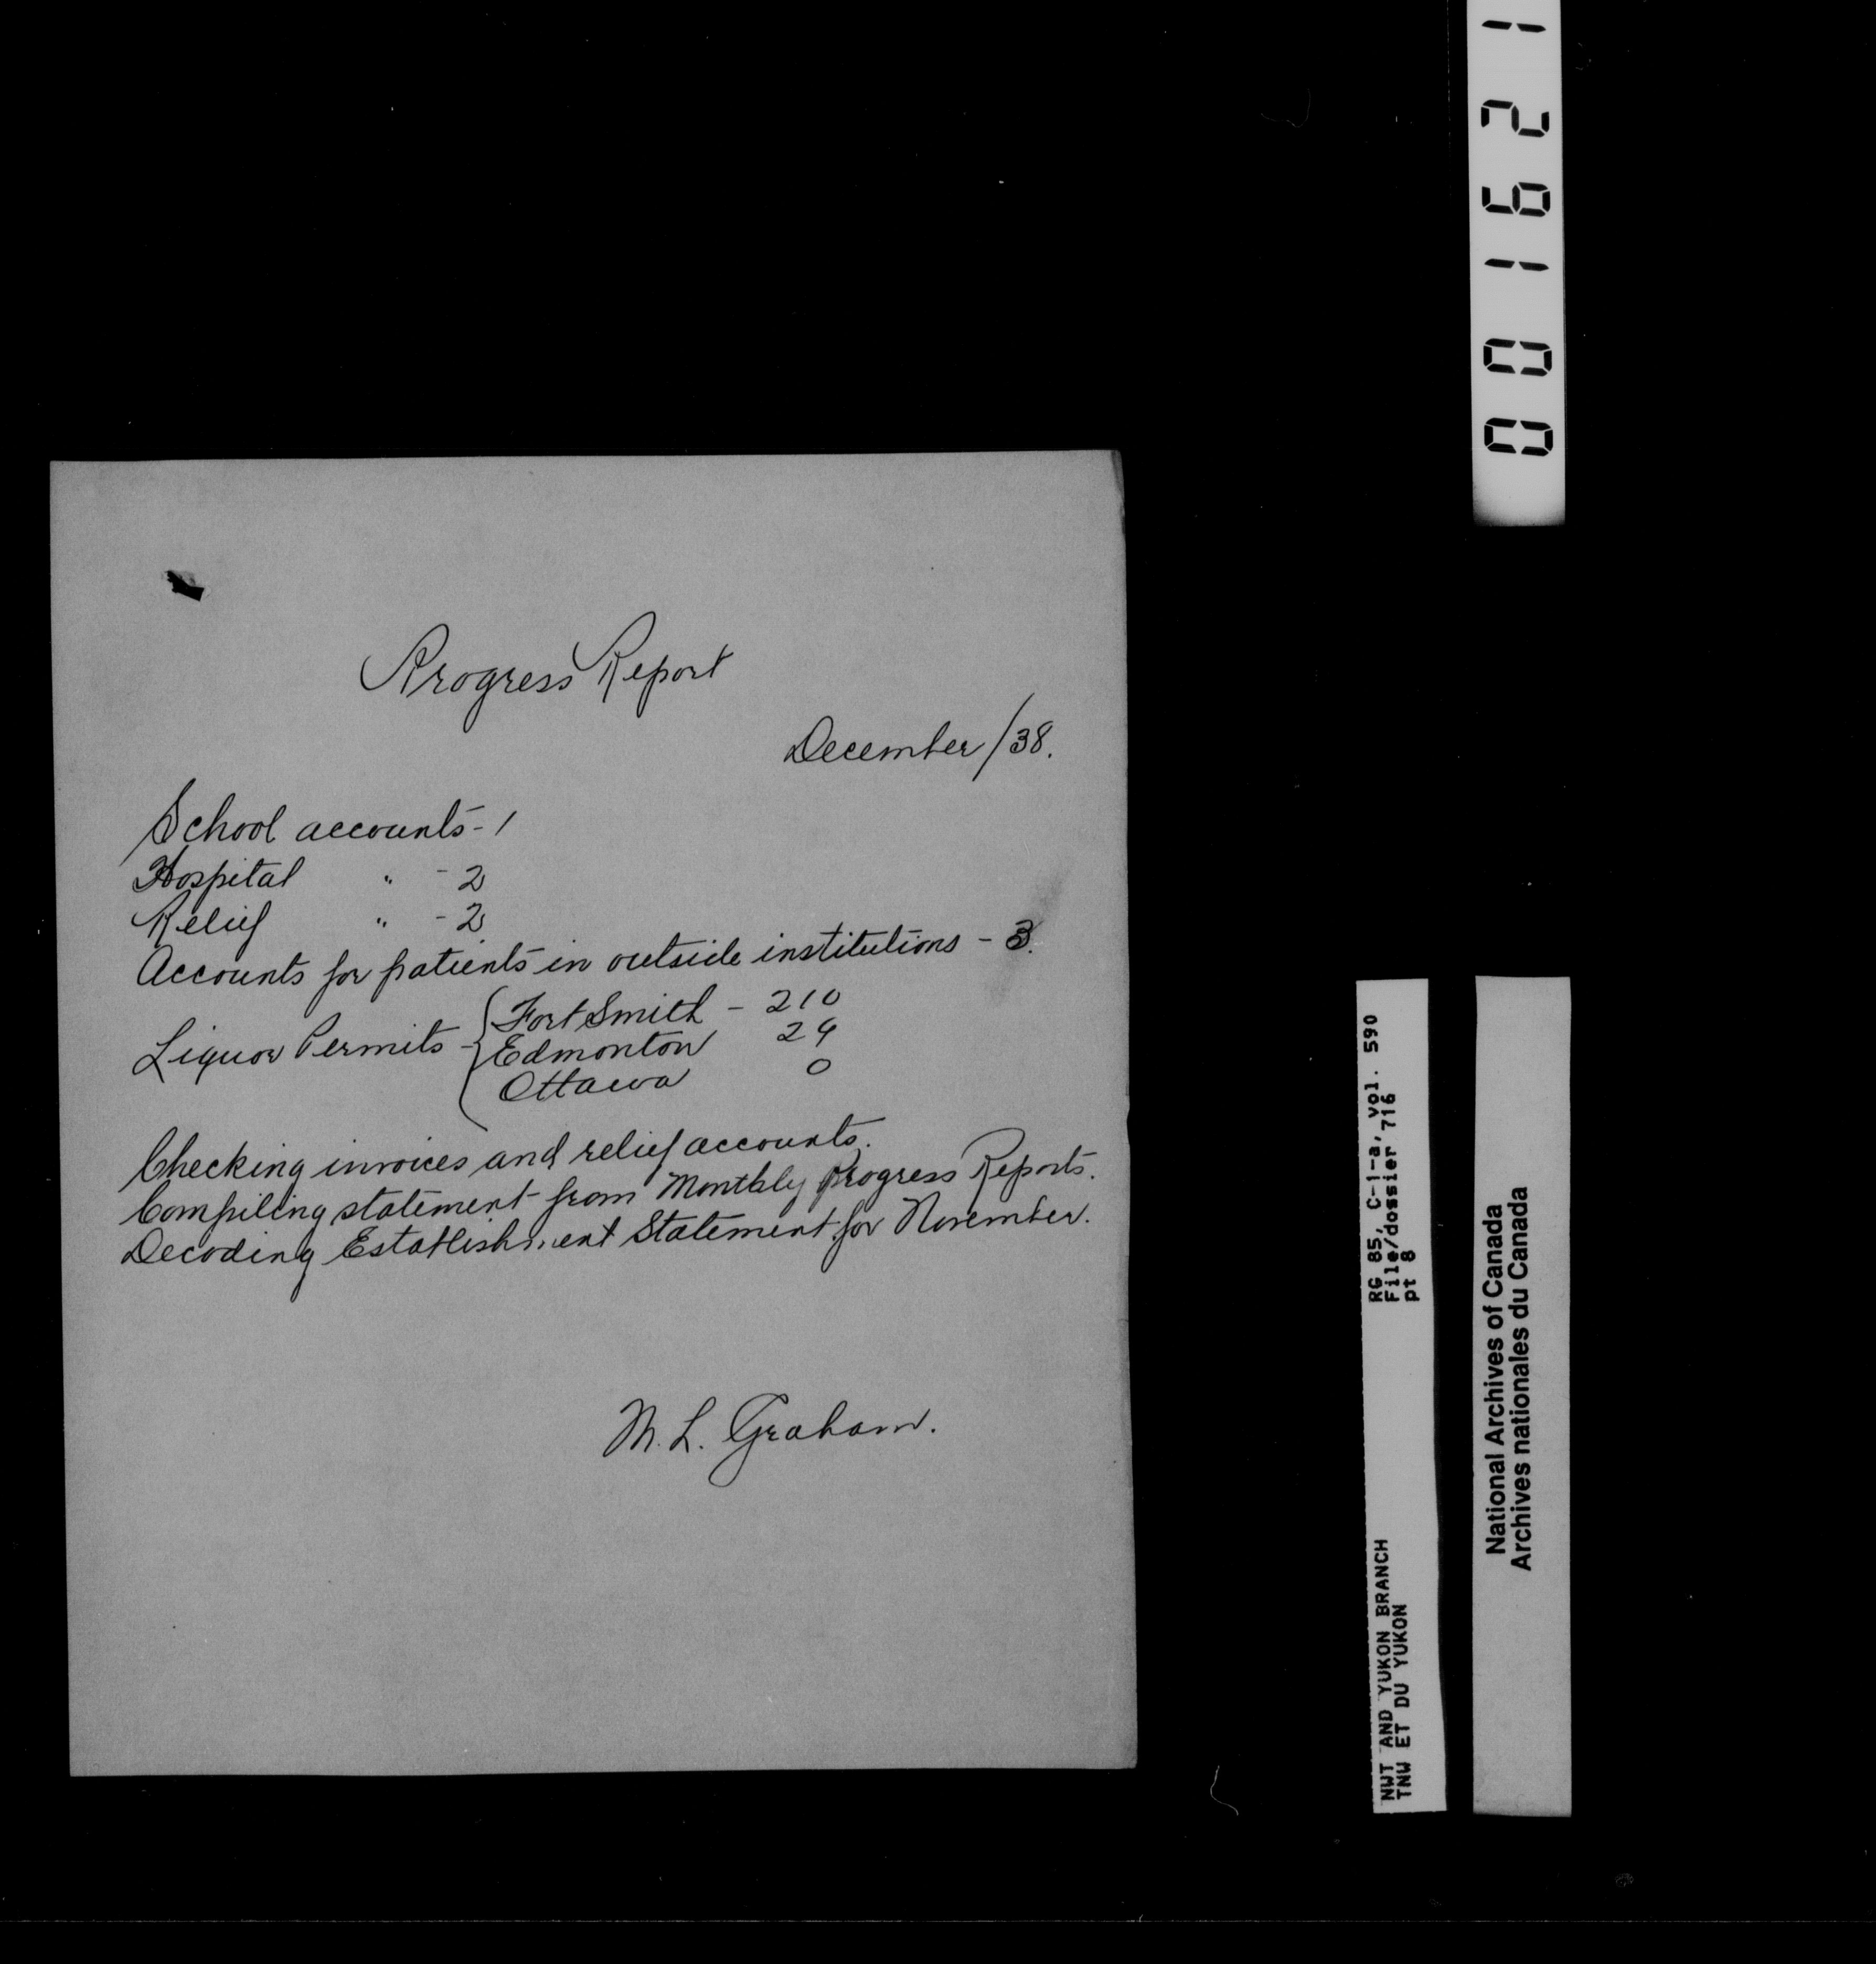 Progress Report
December/38.
School accounts - 1
Hospital " - 2
Relief " - 2
Accounts for patients in outside institutions - 3.
Liquor Permits - { Fort Smith - 210
Edmonton 29
Ottawa 0
Checking invoices and relief accounts.
Compiling statement from Monthly Progress Reports.
Decoding Establishment Statement for November.
M. L. Graham.
001621
RG 85, C-1-a, vol. 590
File/dossier 716
pt 8
NWT AND YUKON BRANCH
TNW ET DU YUKON
National Archives of Canada
Archives nationales du Canada